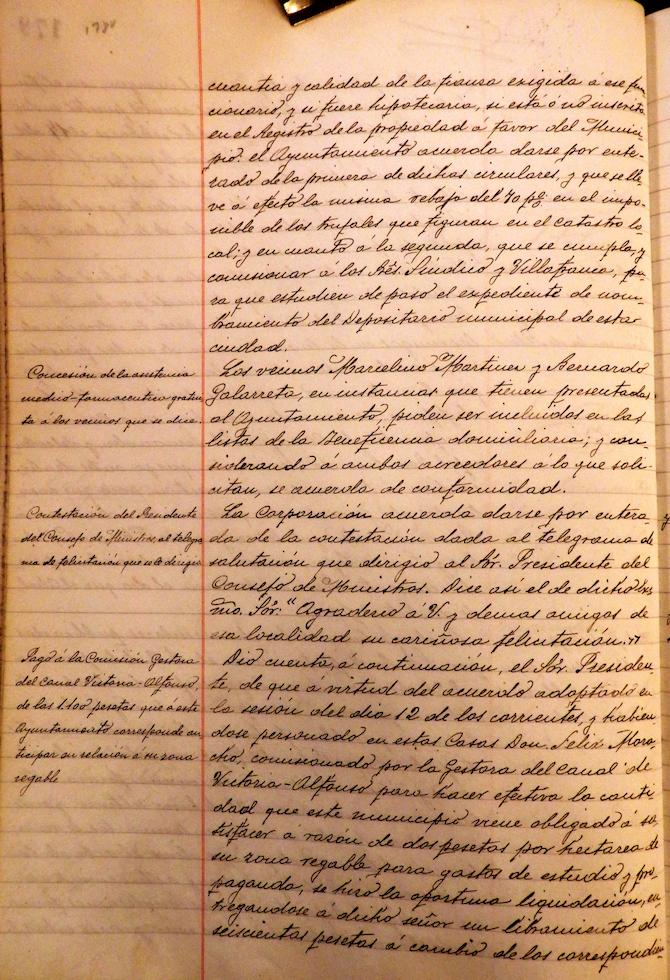 178
cuantia y calidad de la fianza exigida á ese fun-
cionario, y si fuere hipotecaria, si está ó nó inscrita
en el Registro de la propiedad á favor del Munici-
pio: el Ayuntamiento acuerda darse por ente-
rado de la primera de dichas circulares, y que se lle-
ve á efecto la misma rebaja del 40 p% en el impo-
nible de los trujales que figuran en el catastro lo-
cal; y en cuanto á la segunda, que se cumpla, y
comisionar á los Srés. Síndico y Villafranca, pa-
ra que estudien de paso el expediente de nom-
bramiento del Depositario municipal de esta
ciudad.
Concesión de la asistencia
medico-farmaceutica gratui-
ta á los vecinos que se dice.
Los vecinos Marcelino Martinez y Bernardo
Galarreta, en instancias que tienen presentadas
al Ayuntamiento, piden ser incluidos en las
listas de la Beneficencia domiciliaria; y con-
siderando á ambos acreedores á lo que soli-
citan, se acuerda de conformidad.
Contestación del Presidente
del Consejo de Ministros al telegra-
ma de felicitación que se le dirigió
La Corporación acuerda darse por entera-
da de la contestación dada al telegrama de
salutación que dirigió al Sór. Presidente del
Consejo de Ministros. Dice así el de dicho Exc-
mo. Sór: "Agradezco á V. y demas amigos de
esa localidad su cariñosa felicitación."
Pago á la Comisión Gestora
del Canal Victoria-Alfonso,
de las 1.100 pesetas que á este
Ayuntamiento corresponde an-
ticipar en relación á su zona
regable
Dió cuenta, á continuación, el Sór. Presiden-
te, de que á virtud del acuerdo adoptado en
la sesión del dia 12 de los corrientes, y habien-
dose personado en estas Casas Don Felix Mora-
cho, comisionado por la Gestora del Canal de
Victoria-Alfonso para hacer efectiva la canti-
dad que este municipio viene obligado á sa-
tisfacer á razón de dos pesetas por hectarea de
su zona regable para gastos de estudio y pro-
paganda, se hizo la oportuna liquidación, en-
tregandose á dicho señor un libramiento de
seiscientas pesetas á cambio de los correspondien-